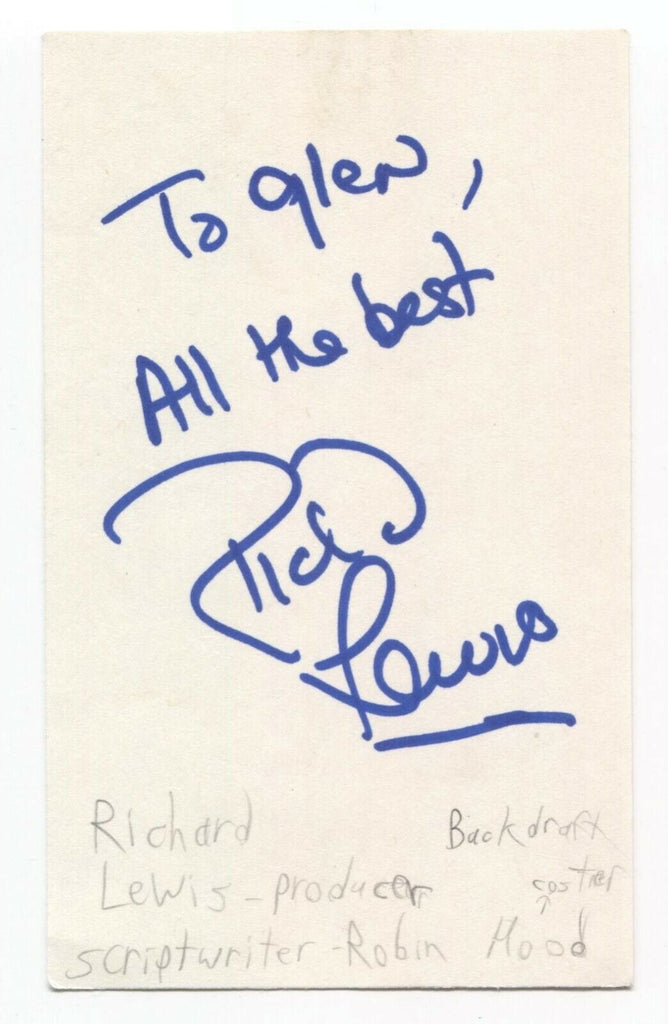 To Glen,
All the best
Rich Lewis
Richard Backdraft
Lewis - producer costner
scriptwriter - Robin Hood